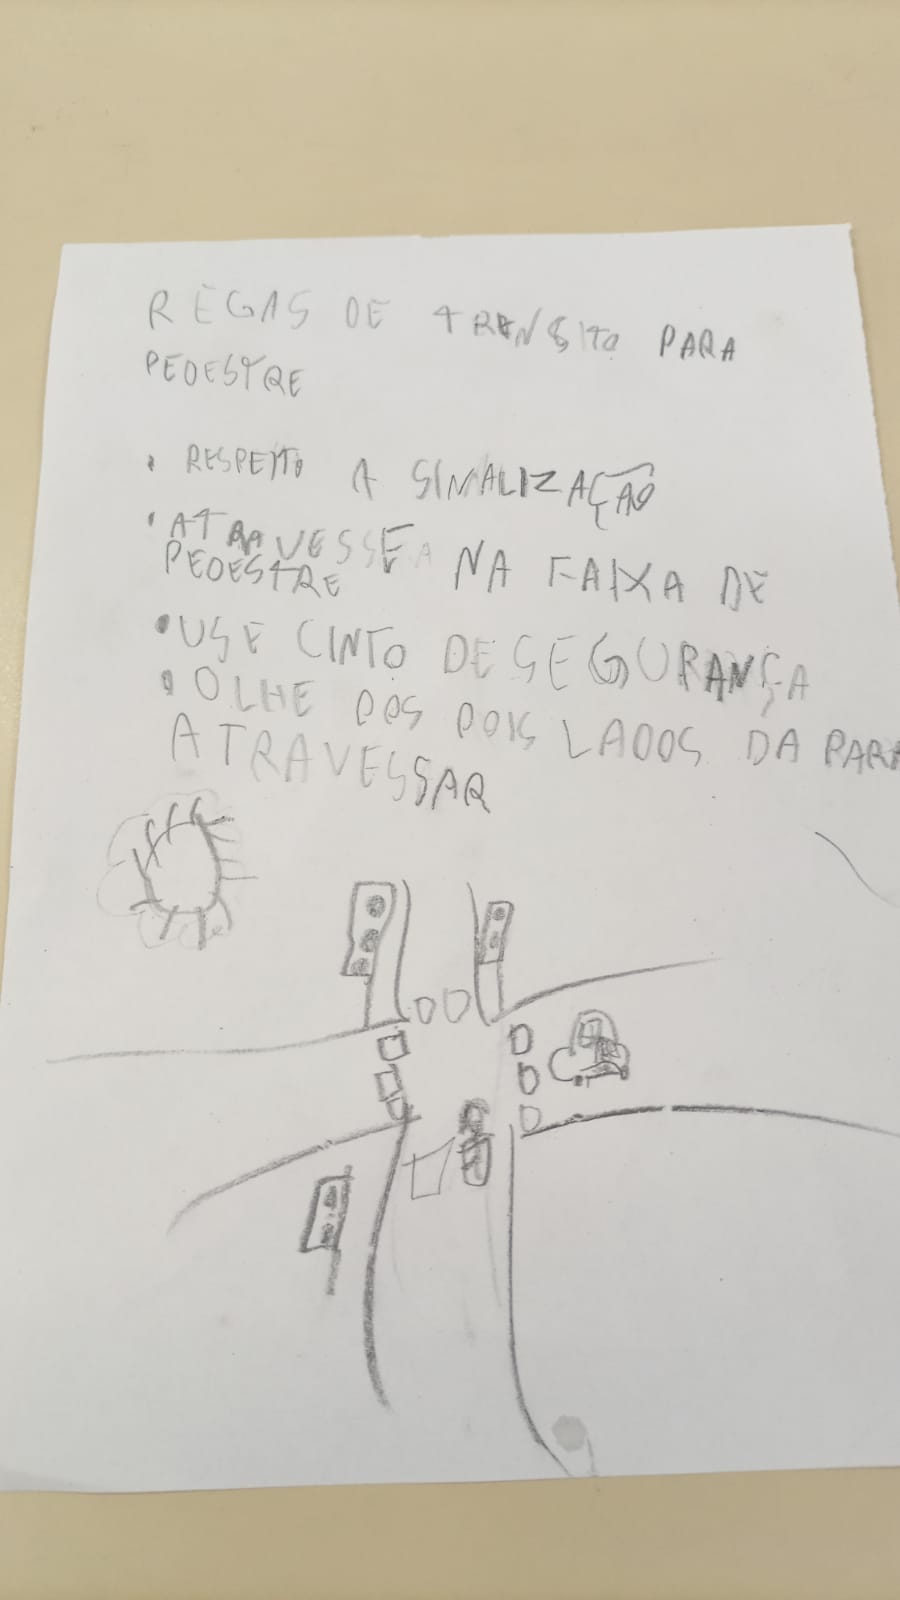 REGAS DE TRANSITO PARA
PEDESTRE
• RESPEITO A SINALIZAÇÃO
• ATRAVESSE NA FAIXA DE
PEDESTRE
• USE CINTO DE SEGURANÇA
• OLHE DOS DOIS LADOS DA PARA
ATRAVESSAR